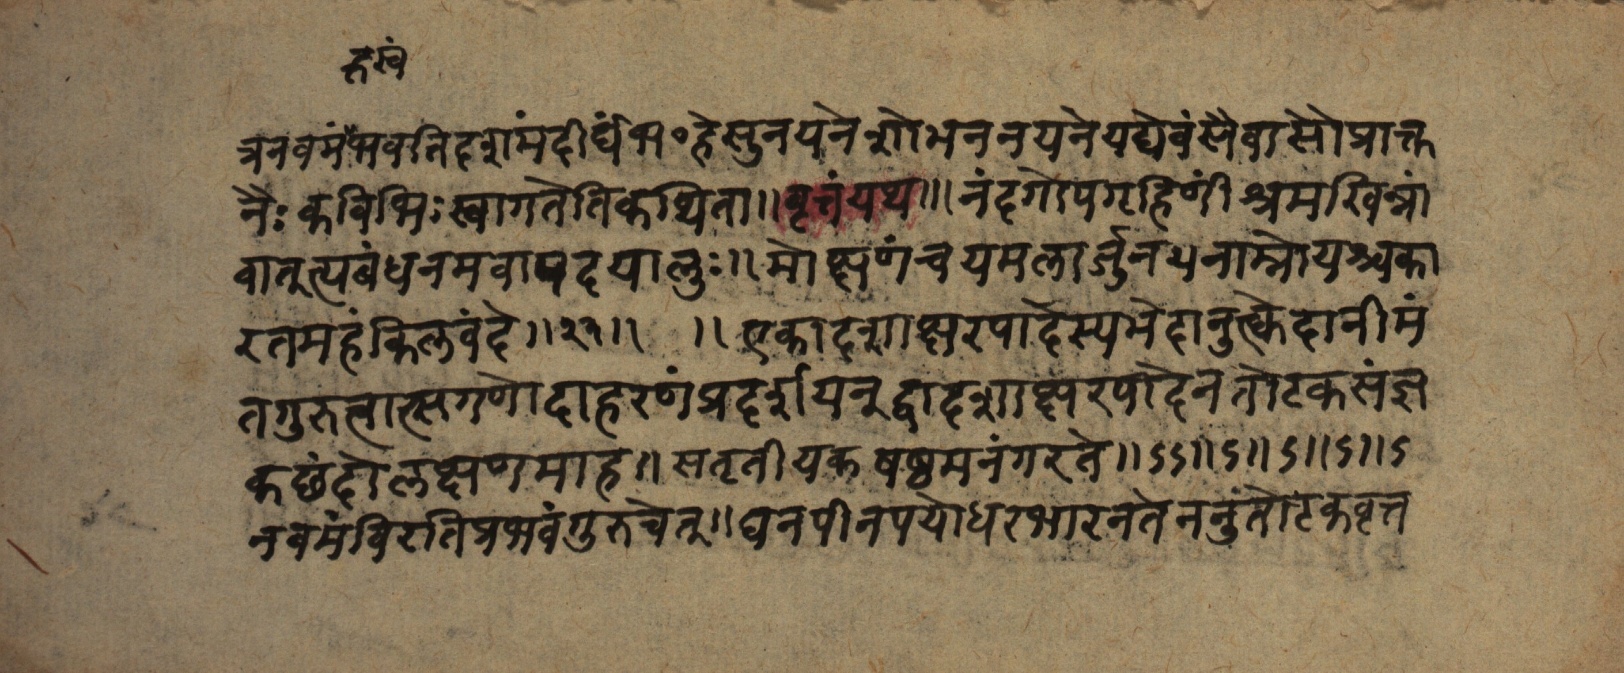 ह्रस्वं
त्र नवमं भवति दशमं दीर्घं भ॰ हे सुनयने शोभननयने यद्येवं सैवासो प्राक्त
नैः कविभिः स्वागतेति कथिता ॥ वृत्तं यथ ॥ नंदगोपगृहिणीं श्रमखिन्नां
वात्मत्यबंधनमवाप दयालुः ॥ मोक्षणं च यमलार्जुनयनाम्नोयश्चका
र तमहं किल वंदे ॥ २१ ॥ ॥ एकादशाक्षरपादस्य भेदानुत्केदानीमं
तगुरुत्वात्सगणोदाहरणं प्रदर्शयन् द्वादशाक्षरपादेन तोटकसंज्ञ
कछंदोलक्षणमाह ॥ सतृतीयकषष्ठमनंगरते ॥ ऽऽ ॥ ऽ ॥ ऽ ॥ ऽ ॥ ऽ
नवमं विरतिप्रभवं गुरु चेत् ॥ घनपीनपयोधरभारनते ननुं तोटकवृत्त